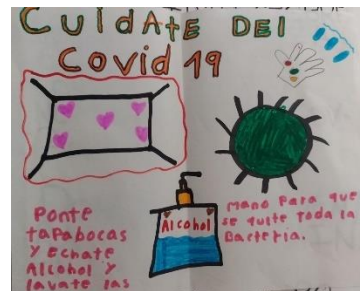 CuIdAtE DEl
Covid 19
Ponte
tapabocas
y Echate
Alcohol y
lavate las
Alcohol
mano Para que
se quite toda la
Bacteria.